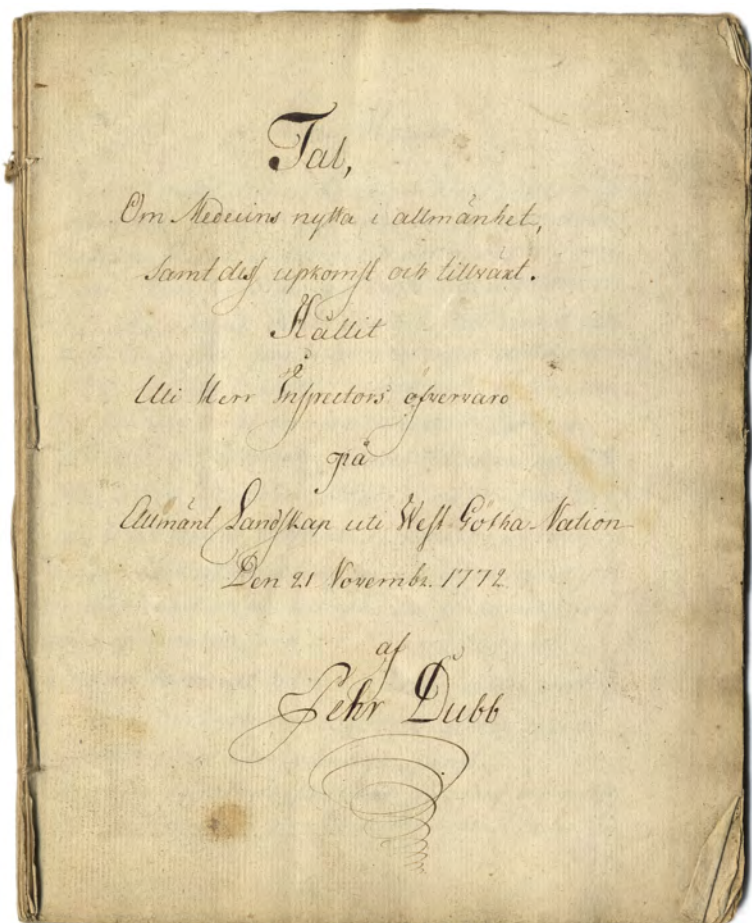 Tal,
Om Medecins nytta i allmänhet,
Samt dess upkomst och tillväxt.
Hållit
Uti Herr Inspectors öfvervaro
på
Allmänt Landskap uti West Götha-Nation
Den 21 Novembr. 1772
af
Pehr Dubb